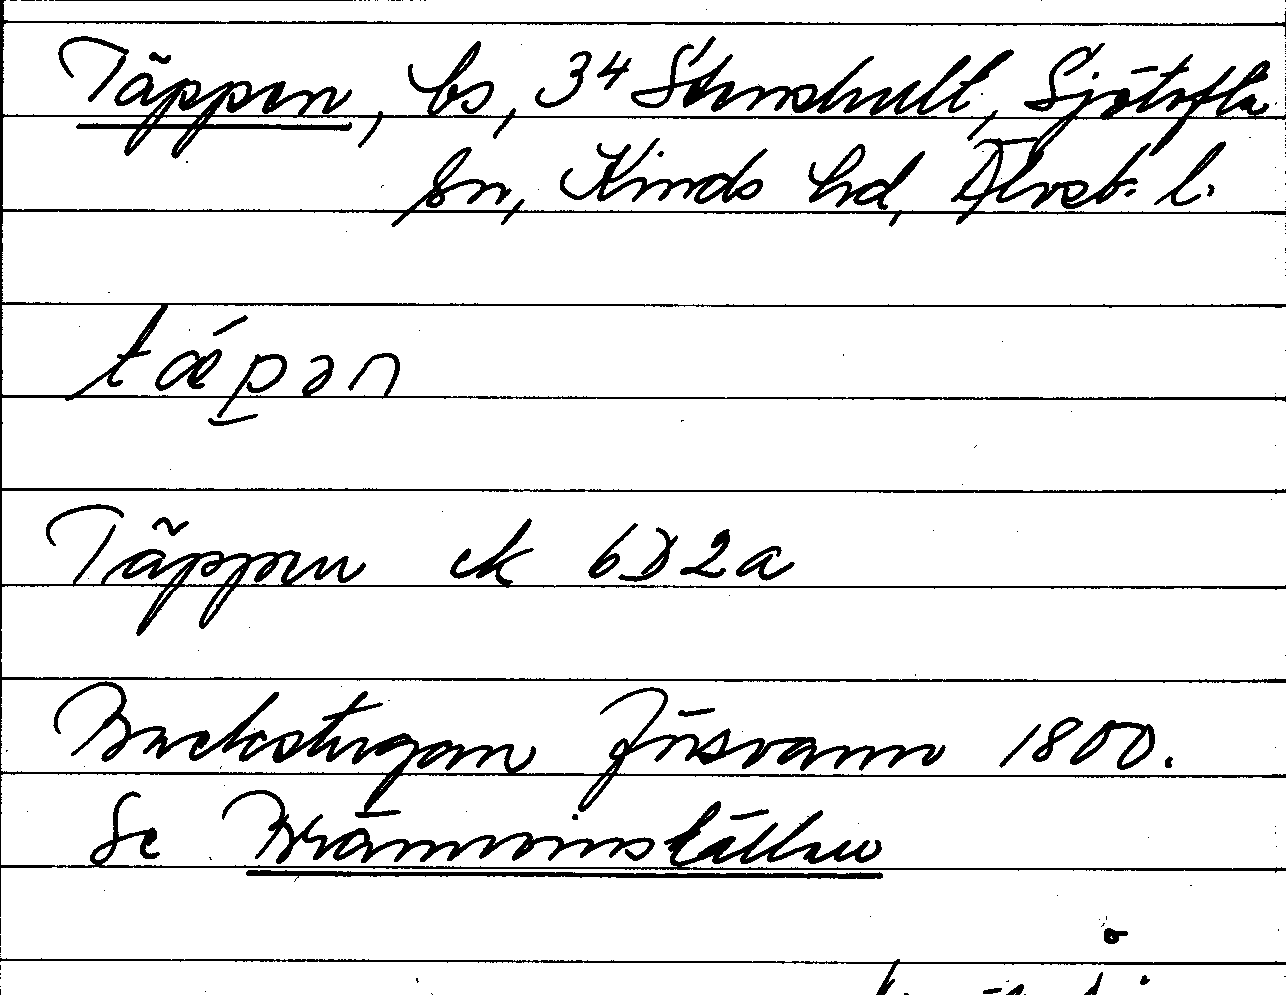 Täppen, bs, 34 Stenshult, Sjötofta
sn, Kinds hd, Älvsb. l.
tǽpən
Täppen ek 6D2a
Backstugan försvann 1800.
Se Bränninslätten